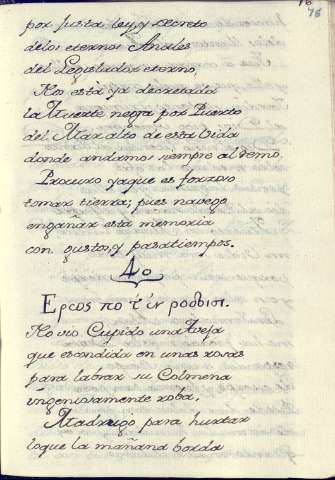 76
76
por justa ley, y decreto
delos eternos Anales
del Legislador eterno,
Nos està ya decretada
la Muerte negra por Puerto
del Mar alto de esta Vida
donde andamos siempre al remo.
Procuro ya que es forzoso
tomar tierra; pues navego
engañar esta memoria
con gustos, y pasatiempos.
4o
Ερcος πο τ' ἐν ροδοισι.
No vio Cupido una Aveja
que escondida en unas rosas
para labrar su Colmena
ingeniosamente roba.
Madrugo para hurtar
loque la mañana borda